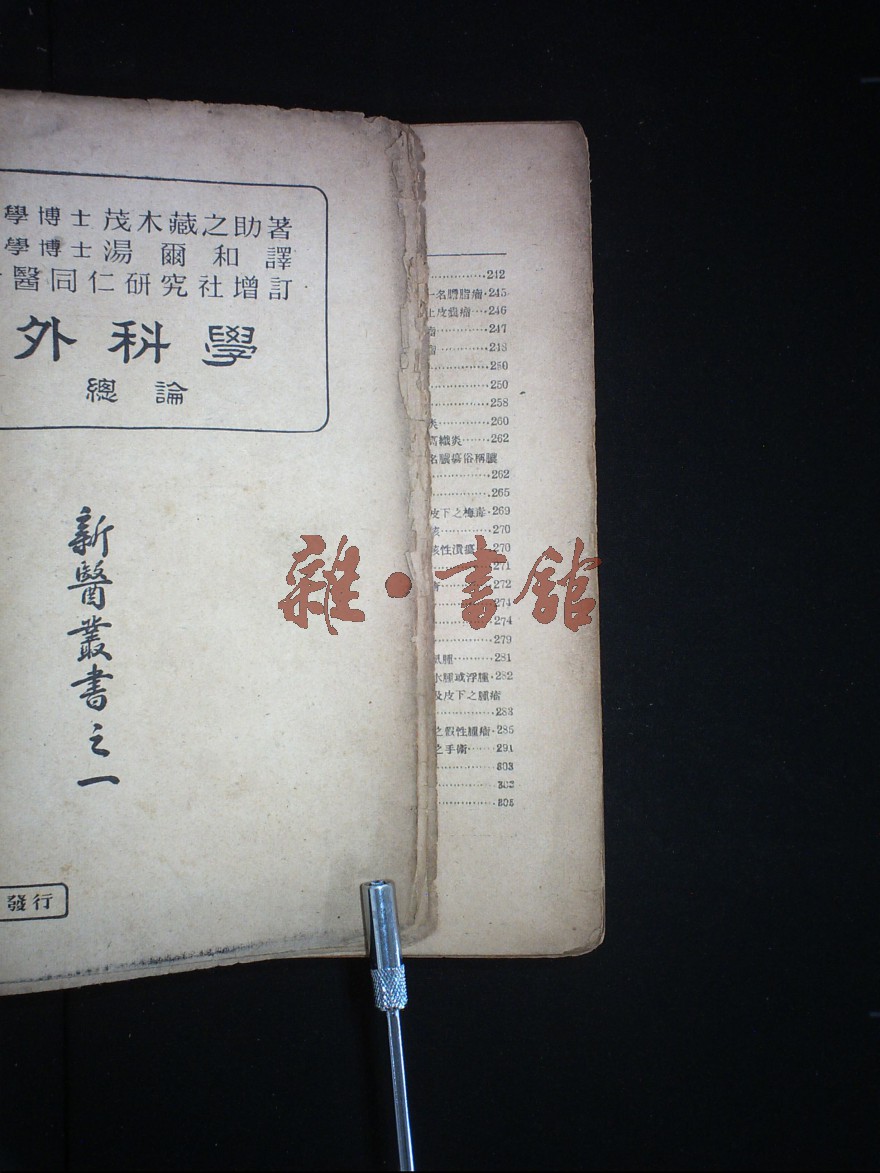 學博士 茂木藏之助著
學博士 湯爾和譯
醫同仁研究社增訂
外科學
總論
新醫叢書之一
發行
雜·書館
242
一名膽脂瘤·245
上皮囊瘤…246
247
250
258
260
262
262
265
皮下之梅毒·269
270
270
271
272
274
274
279
281
水腫或浮腫·282
及皮下之腫瘤
283
之假性腫瘤·285
之手術……291
303